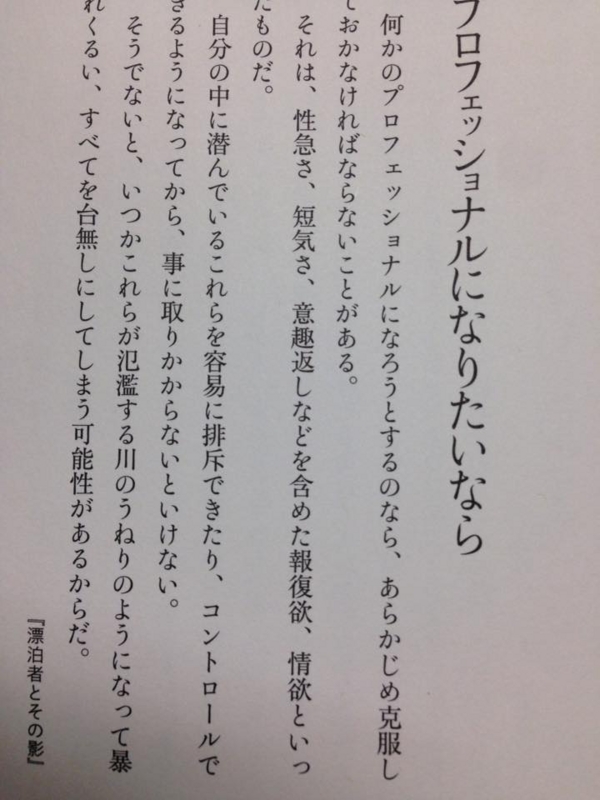 プロフェッショナルになりたいなら
何かのプロフェッショナルになろうとするのなら、あらかじめ克服し
ておかなければならないことがある。
それは、性急さ、短気さ、意趣返しなどを含めた報復欲、情欲といっ
たものだ。
自分の中に潜んでいるこれらを容易に排斥できたり、コントロールで
きるようになってから、事に取りかからないといけない。
そうでないと、いつかこれらが氾濫する川のうねりのようになって暴
れくるい、すべてを台無しにしてしまう可能性があるからだ。
『漂泊者とその影』